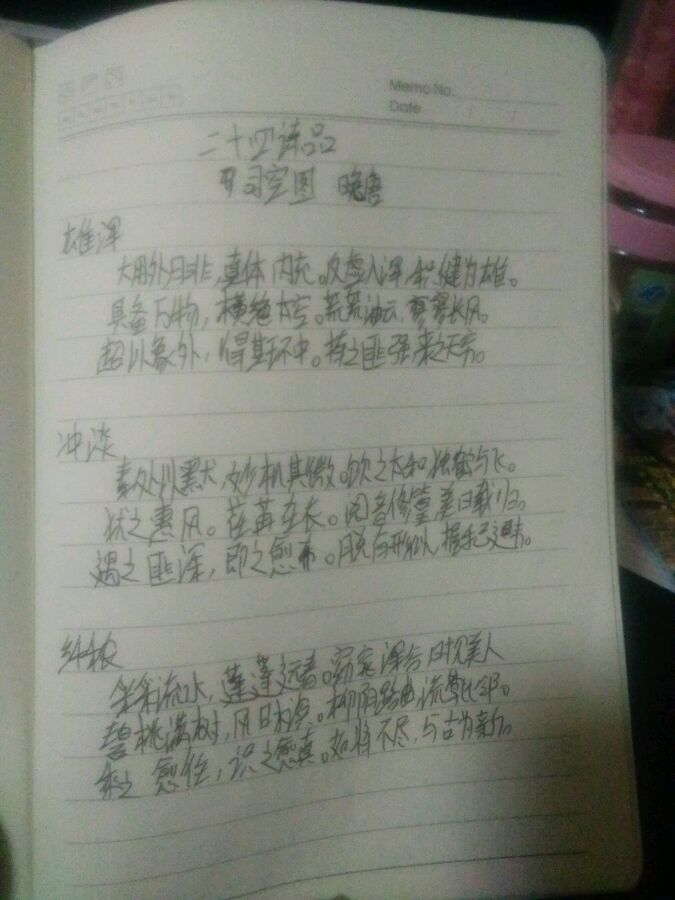 Memo No.
Date
二十四诗品
司空图 晚唐
雄浑
大用外腓，真体内充。反虚入浑，积健为雄。
具备万物，横绝太空。荒荒油云，寥寥长风。
超以象外，得其环中。持之匪强，来之无穷。
冲淡
素处以默，妙机其微。饮之太和，独鹤与飞。
犹之惠风。荏苒在衣。阅音修篁，美曰载归。
遇之匪深，即之愈希。脱有形似，握手已违。
纤秾
采采流水，蓬蓬远春。窈窕深谷，时见美人
碧桃满树，风日水滨。柳阴路曲，流莺比邻。
乘之愈往，识之愈真。如将不尽，与古为新。